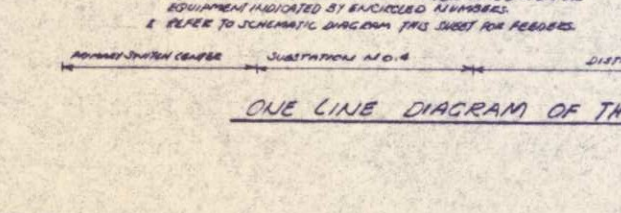 EQUIPMENT INDICATED BY ENCIRCLED NUMBERS.
REFER TO SCHEMATIC DIAGRAM THIS SHEET FOR FEEDERS.
PRIMARY SWITCH CENTER SUBSTATION NO.4 DIST
ONE LINE DIAGRAM OF TH